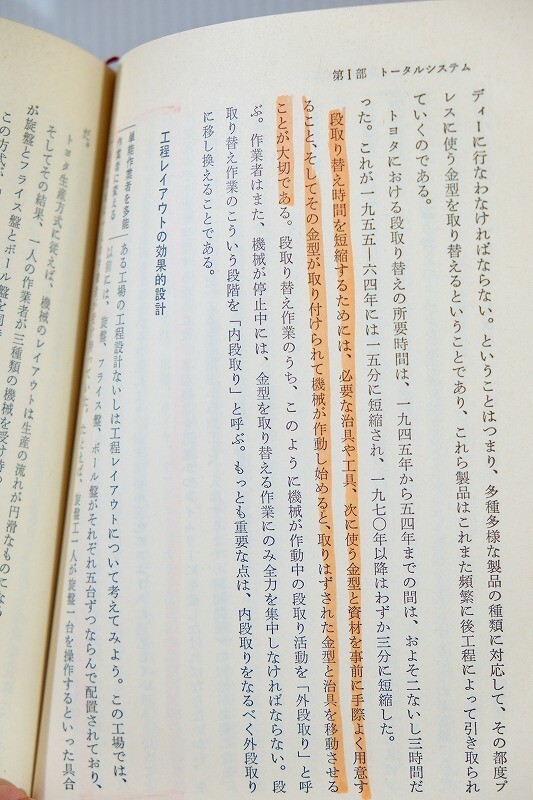 第Ⅰ部　トータルシステム
ディーに行なわなければならない。ということはつまり、多種多様な製品の種類に対応して、その都度プ
レスに使う金型を取り替えるということであり、これら製品はこれまた頻繁に後工程によって引き取られ
ていくのである。
トヨタにおける段取り替えの所要時間は、一九四五年から五四年までの間は、およそ二ないし三時間だ
った。これが一九五五―六四年には一五分に短縮され、一九七〇年以降はわずか三分に短縮した。
段取り替え時間を短縮するためには、必要な治具や工具、次に使う金型と資材を事前に手際よく用意す
ること、そしてその金型が取り付けられて機械が作動し始めると、取りはずされた金型と治具を移動させる
ことが大切である。段取り替え作業のうち、このように機械が作動中の段取り活動を「外段取り」と呼
ぶ。作業者はまた、機械が停止中には、金型を取り替える作業にのみ全力を集中しなければならない。段
取り替え作業のこういう段階を「内段取り」と呼ぶ。もっとも重要な点は、内段取りをなるべく外段取り
に移し換えることである。
工程レイアウトの効果的設計
単能作業者を多能
作業者に変える
ある工場の工程設計ないしは工程レイアウトについて考えてみよう。この工場では、
以前には、旋盤、フライス盤、ボール盤がそれぞれ五台ずつならんで配置されており、
旋盤工一人が旋盤一台を操作するといった具合
トヨタ生産方式に従えば、機械のレイアウトは生産の流れが円滑なものになる
そしてその結果、一人の作業者が三種類の機械を受け持つ
が旋盤とフライス盤とボール盤を同時
この方式